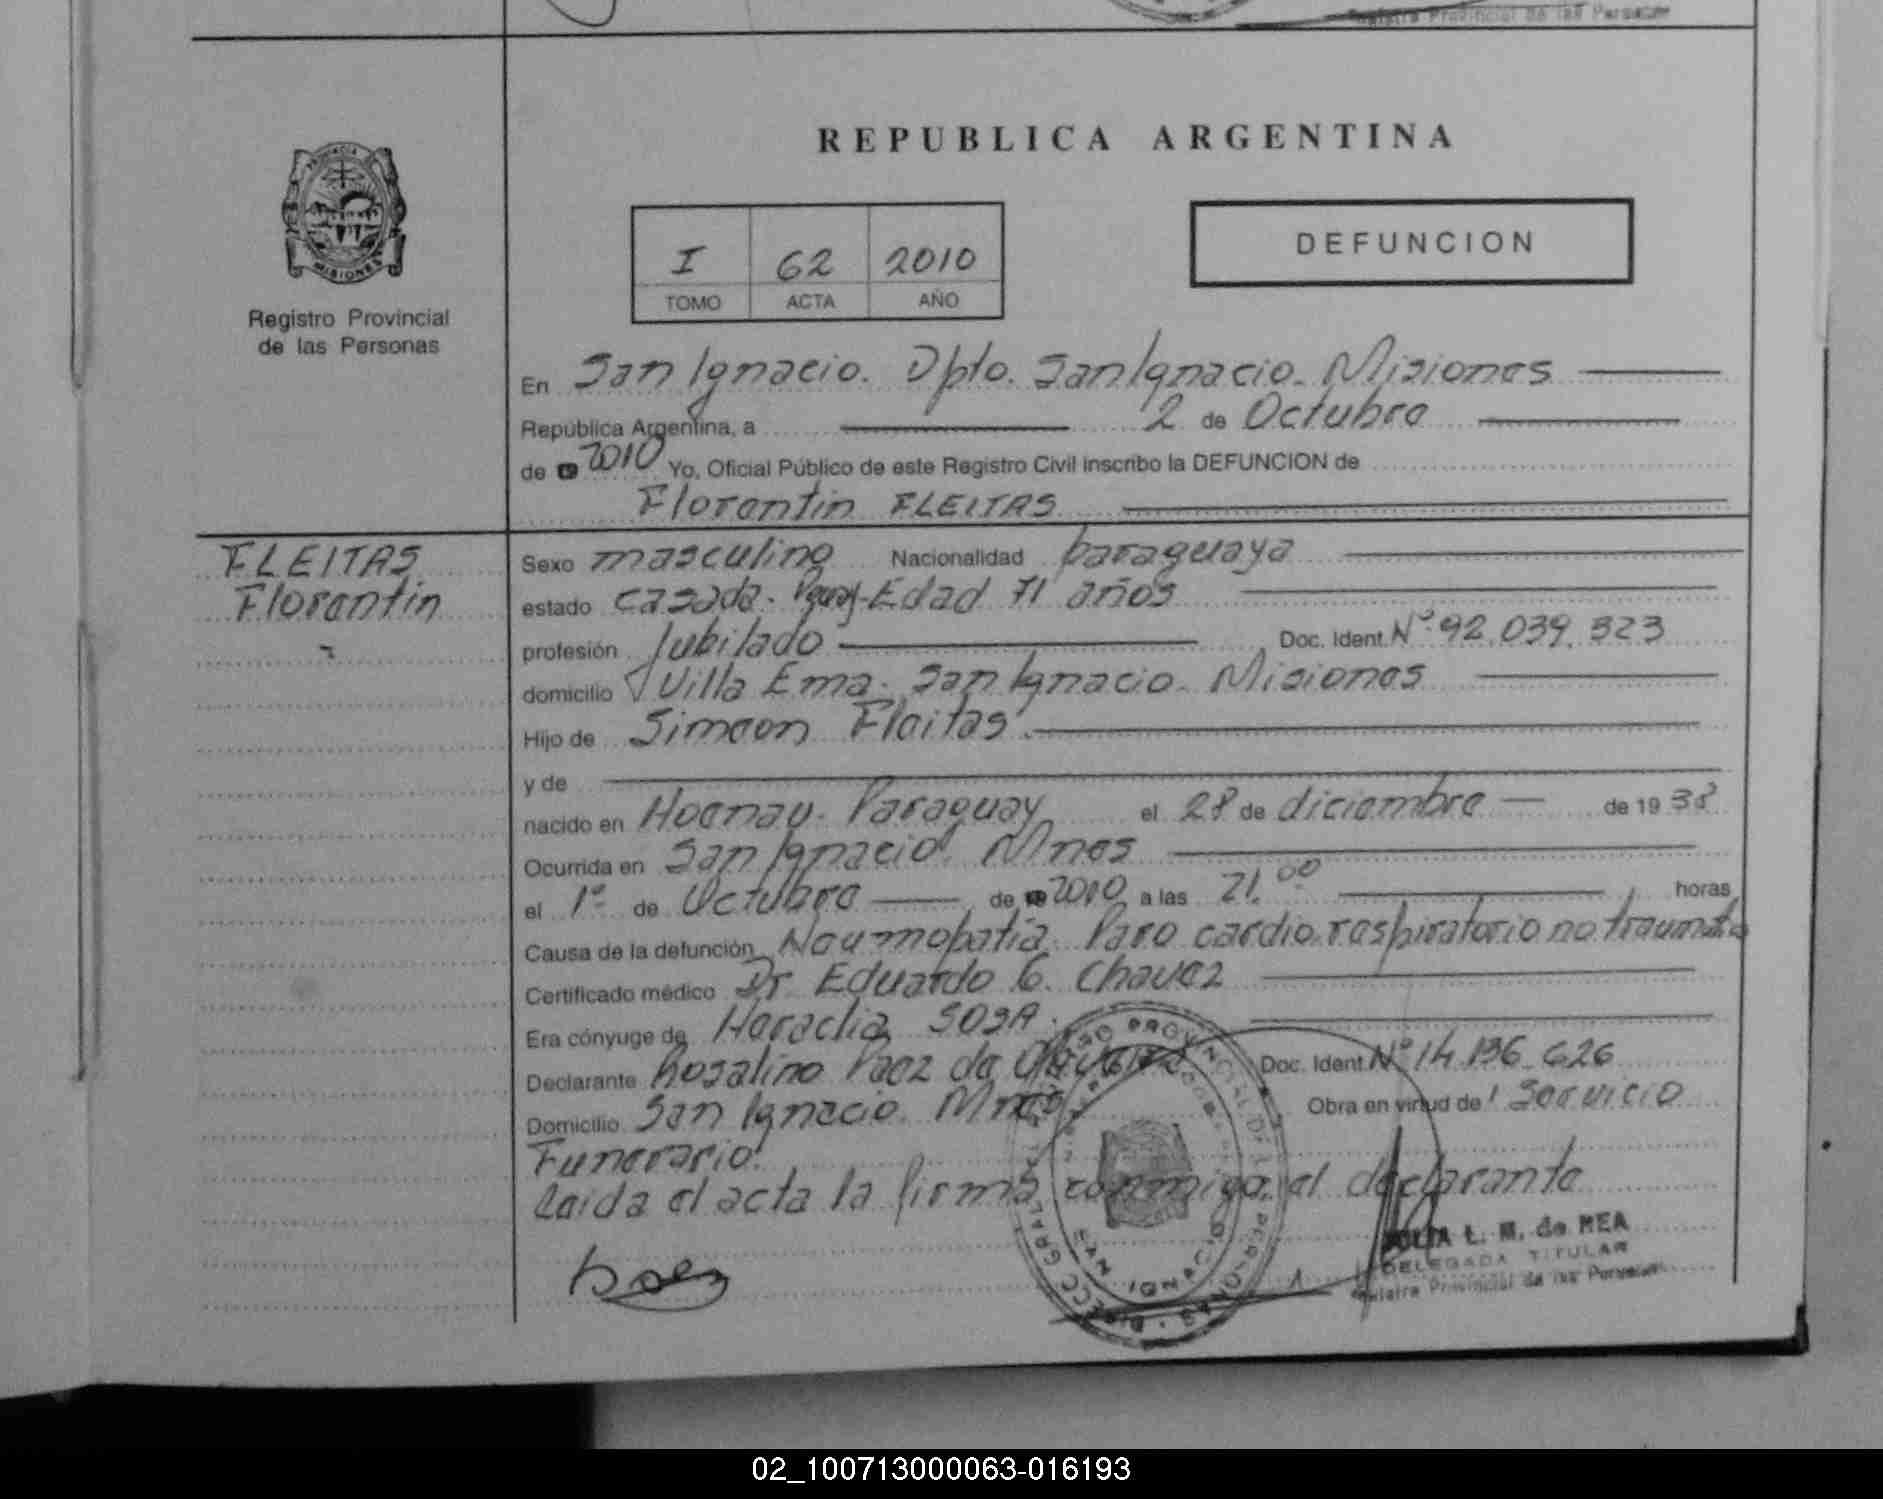 Registro Provincial de las Personas
REPUBLICA ARGENTINA
PROVINCIA
MISIONES
Registro Provincial
de las Personas
I 62 2010
TOMO ACTA AÑO
DEFUNCION
En San Ignacio. Dpto. San Ignacio. Misiones
República Argentina, a 2 de Octubre
de 2010 Yo, Oficial Público de este Registro Civil inscribo la DEFUNCION de
Florentin FLEITAS
FLEITAS
Florentin
Sexo masculino Nacionalidad paraguaya
estado casado. Edad 71 años
profesión Jubilado Doc. Ident. Nº 92.039.323
domicilio Villa Ema. San Ignacio. Misiones
Hijo de Simeon Fleitas.
y de
nacido en Hoenau. Paraguay el 28 de diciembre de 1938
Ocurrida en San Ignacio Mnes
el 1º de Octubre de 2010 a las 21.00 horas
Causa de la defunción Neumopatia. Paro cardio respiratorio no traumatico
Certificado médico Dr Eduardo G. Chavez
Era cónyuge de Heraclia SOSA.
Declarante Rosalino Paez de Oliveira Doc. Ident. Nº 14.136.626
Domicilio San Ignacio. Mnes Obra en virtud de Servicio
Funerario.
Leida el acta la firma conmigo el declarante
L. M. de REA
DELEGADA TITULAR
Registro Provincial de las Personas
02_100713000063-016193